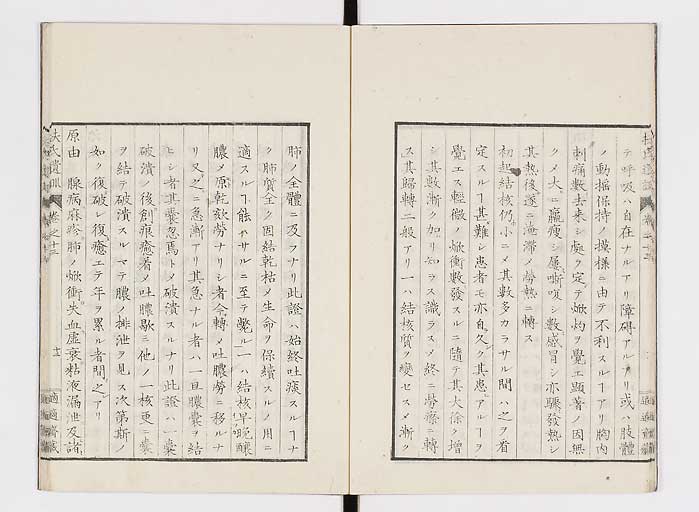 テ呼吸ハ自在ナルアリ障碍アルアリ或ハ肢體
ノ動揺保持ノ摸様ニ由テ不利スルヿアリ胸内
刺痛數去來シ處ヲ定テ焮灼ヲ覺エ顯著ノ因無
クメ大ニ羸痩シ屢嘶嗄シ數感冒シ亦驟發熱シ
其熱後遂ニ淹滞ノ勞熱ニ轉ス
初起結核仍小ニメ其數多カラサル間ハ之ヲ看
定スルヿ甚難シ患者モ亦自久ク其患アルヿヲ
覺エス輕微ノ焮衝數發スルニ隨テ其大徐ク增
シ其數漸ク加リ知ラス識ラスメ終ニ勞瘵ニ轉
ス其歸轉二般アリ一ハ結核質ヲ變セスメ漸ク
肺ノ全體ニ及フナリ此證ハ始終吐痰スルヿナ
ク肺質全ク固結乾枯メ生命ヲ保續スルノ用ニ
適スルヿ能ハサルニ至テ斃ル一ハ結核早晩釀
膿メ原乾欬勞ナリシ者今轉メ吐膿勞ニ移ルナ
リ又之ニ急漸アリ其急ナル者ハ一旦膿囊ヲ結
ヒシ者其囊忽焉トメ破潰スルナリ此證ハ囊
破潰ノ後創痕癒着メ吐膿歇ミ他ノ一核更ニ囊
ヲ結テ破潰スルマテ膿ノ排泄ヲ見ス次第斯ノ
如ク復破レ復癒エテ年ヲ累ル者間之アリ
原由 腺病麻疹肺ノ焮衝失血虛衰粘液漏泄及諸
扶氏遺訓
卷之十三
適適齋藏